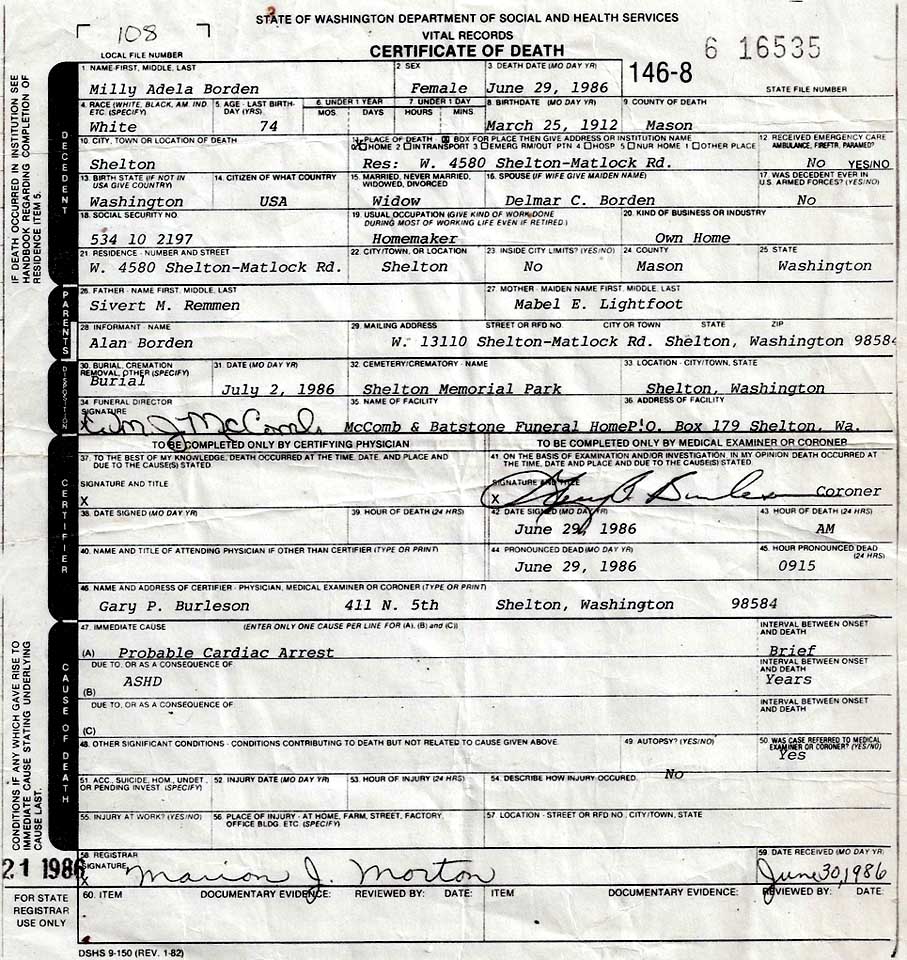 STATE OF WASHINGTON DEPARTMENT OF SOCIAL AND HEALTH SERVICES
VITAL RECORDS
CERTIFICATE OF DEATH
108
LOCAL FILE NUMBER
146-8
6 16535
STATE FILE NUMBER
IF DEATH OCCURRED IN INSTITUTION SEE HANDBOOK REGARDING COMPLETION OF RESIDENCE ITEMS.
DECEDENT
1 NAME-FIRST, MIDDLE, LAST 2 SEX 3 DEATH DATE (MO DAY YR)
Milly Adela Borden Female June 29, 1986
4. RACE (WHITE, BLACK, AM. IND. ETC. (SPECIFY) 5. AGE - LAST BIRTHDAY (YRS) 6 UNDER 1 YEAR MOS. DAYS 7 UNDER 1 DAY HOURS MINS. 8 BIRTHDATE (MO DAY YR) 9 COUNTY OF DEATH
White 74 March 25, 1912 Mason
10 CITY, TOWN OR LOCATION OF DEATH 11 PLACE OF DEATH BOX FOR PLACE THEN GIVE ADDRESS OR INSTITUTION NAME 12 RECEIVED EMERGENCY CARE
HOME 2 IN TRANSPORT 3 EMERG RM/OUT PTN 4 HOSP 5 NUR HOME 1 OTHER PLACE AMBULANCE, FIREFTR, PARAMED?
Shelton Res: W. 4580 Shelton-Matlock Rd. No YES/NO
13. BIRTH STATE (IF NOT IN USA GIVE COUNTRY) 14. CITIZEN OF WHAT COUNTRY 15. MARRIED, NEVER MARRIED, WIDOWED, DIVORCED 16. SPOUSE (IF WIFE GIVE MAIDEN NAME) 17. WAS DECEDENT EVER IN U.S. ARMED FORCES? (YES/NO)
Washington USA Widow Delmar C. Borden No
18. SOCIAL SECURITY NO. 19. USUAL OCCUPATION (GIVE KIND OF WORK DONE DURING MOST OF WORKING LIFE EVEN IF RETIRED) 20. KIND OF BUSINESS OR INDUSTRY
534 10 2197 Homemaker Own Home
21 RESIDENCE - NUMBER AND STREET 22. CITY/TOWN, OR LOCATION 23. INSIDE CITY LIMITS? (YES/NO) 24 COUNTY 25 STATE
W. 4580 Shelton-Matlock Rd. Shelton No Mason Washington
PARENTS
26. FATHER - NAME FIRST, MIDDLE, LAST 27. MOTHER - MAIDEN NAME FIRST, MIDDLE, LAST
Sivert M. Remmen Mabel E. Lightfoot
28 INFORMANT - NAME 29. MAILING ADDRESS STREET OR RFD NO. CITY OR TOWN STATE ZIP
Alan Borden W. 13110 Shelton-Matlock Rd. Shelton, Washington 98584
DISPOSITION
30. BURIAL, CREMATION REMOVAL, OTHER (SPECIFY) 31. DATE (MO DAY YR) 32. CEMETERY/CREMATORY - NAME 33 LOCATION - CITY/TOWN, STATE
Burial July 2, 1986 Shelton Memorial Park Shelton, Washington
34 FUNERAL DIRECTOR SIGNATURE 35 NAME OF FACILITY 36 ADDRESS OF FACILITY
X Wm J McComb McComb & Batstone Funeral Home P.O. Box 179 Shelton, Wa.
CERTIFIER
TO BE COMPLETED ONLY BY CERTIFYING PHYSICIAN TO BE COMPLETED ONLY BY MEDICAL EXAMINER OR CORONER
37. TO THE BEST OF MY KNOWLEDGE, DEATH OCCURRED AT THE TIME, DATE, AND PLACE AND DUE TO THE CAUSE(S) STATED. 41. ON THE BASIS OF EXAMINATION AND/OR INVESTIGATION, IN MY OPINION DEATH OCCURRED AT THE TIME, DATE AND PLACE AND DUE TO THE CAUSE(S) STATED.
SIGNATURE AND TITLE SIGNATURE AND TITLE
X X Gary P Burleson Coroner
38. DATE SIGNED (MO DAY YR) 39. HOUR OF DEATH (24 HRS) 42 DATE SIGNED (MO DAY YR) 43 HOUR OF DEATH (24 HRS)
June 29, 1986 AM
40. NAME AND TITLE OF ATTENDING PHYSICIAN IF OTHER THAN CERTIFIER (TYPE OR PRINT) 44 PRONOUNCED DEAD (MO DAY YR) 45. HOUR PRONOUNCED DEAD (24 HRS)
June 29, 1986 0915
46 NAME AND ADDRESS OF CERTIFIER - PHYSICIAN, MEDICAL EXAMINER OR CORONER (TYPE OR PRINT)
Gary P. Burleson 411 N. 5th Shelton, Washington 98584
CONDITIONS IF ANY WHICH GAVE RISE TO IMMEDIATE CAUSE STATING UNDERLYING CAUSE LAST.
CAUSE OF DEATH
47. IMMEDIATE CAUSE (ENTER ONLY ONE CAUSE PER LINE FOR (A), (B) and (C)) INTERVAL BETWEEN ONSET AND DEATH
(A) Probable Cardiac Arrest Brief
DUE TO, OR AS A CONSEQUENCE OF: INTERVAL BETWEEN ONSET AND DEATH
(B) ASHD Years
DUE TO, OR AS A CONSEQUENCE OF: INTERVAL BETWEEN ONSET AND DEATH
(C)
48. OTHER SIGNIFICANT CONDITIONS - CONDITIONS CONTRIBUTING TO DEATH BUT NOT RELATED TO CAUSE GIVEN ABOVE. 49 AUTOPSY? (YES/NO) 50. WAS CASE REFERRED TO MEDICAL EXAMINER OR CORONER? (YES/NO)
No Yes
51. ACC., SUICIDE, HOM., UNDET., OR PENDING INVEST. (SPECIFY) 52. INJURY DATE (MO DAY YR) 53. HOUR OF INJURY (24 HRS) 54. DESCRIBE HOW INJURY OCCURED.
55. INJURY AT WORK? (YES/NO) 56. PLACE OF INJURY - AT HOME, FARM, STREET, FACTORY, OFFICE BLDG. ETC. (SPECIFY) 57 LOCATION - STREET OR RFD NO., CITY/TOWN, STATE
21 1986
58 REGISTRAR SIGNATURE 59. DATE RECEIVED (MO DAY YR)
X Marion J. Morton June 30, 1986
FOR STATE REGISTRAR USE ONLY
60. ITEM DOCUMENTARY EVIDENCE: REVIEWED BY: DATE: ITEM DOCUMENTARY EVIDENCE: REVIEWED BY: DATE:
DSHS 9-150 (REV. 1-82)